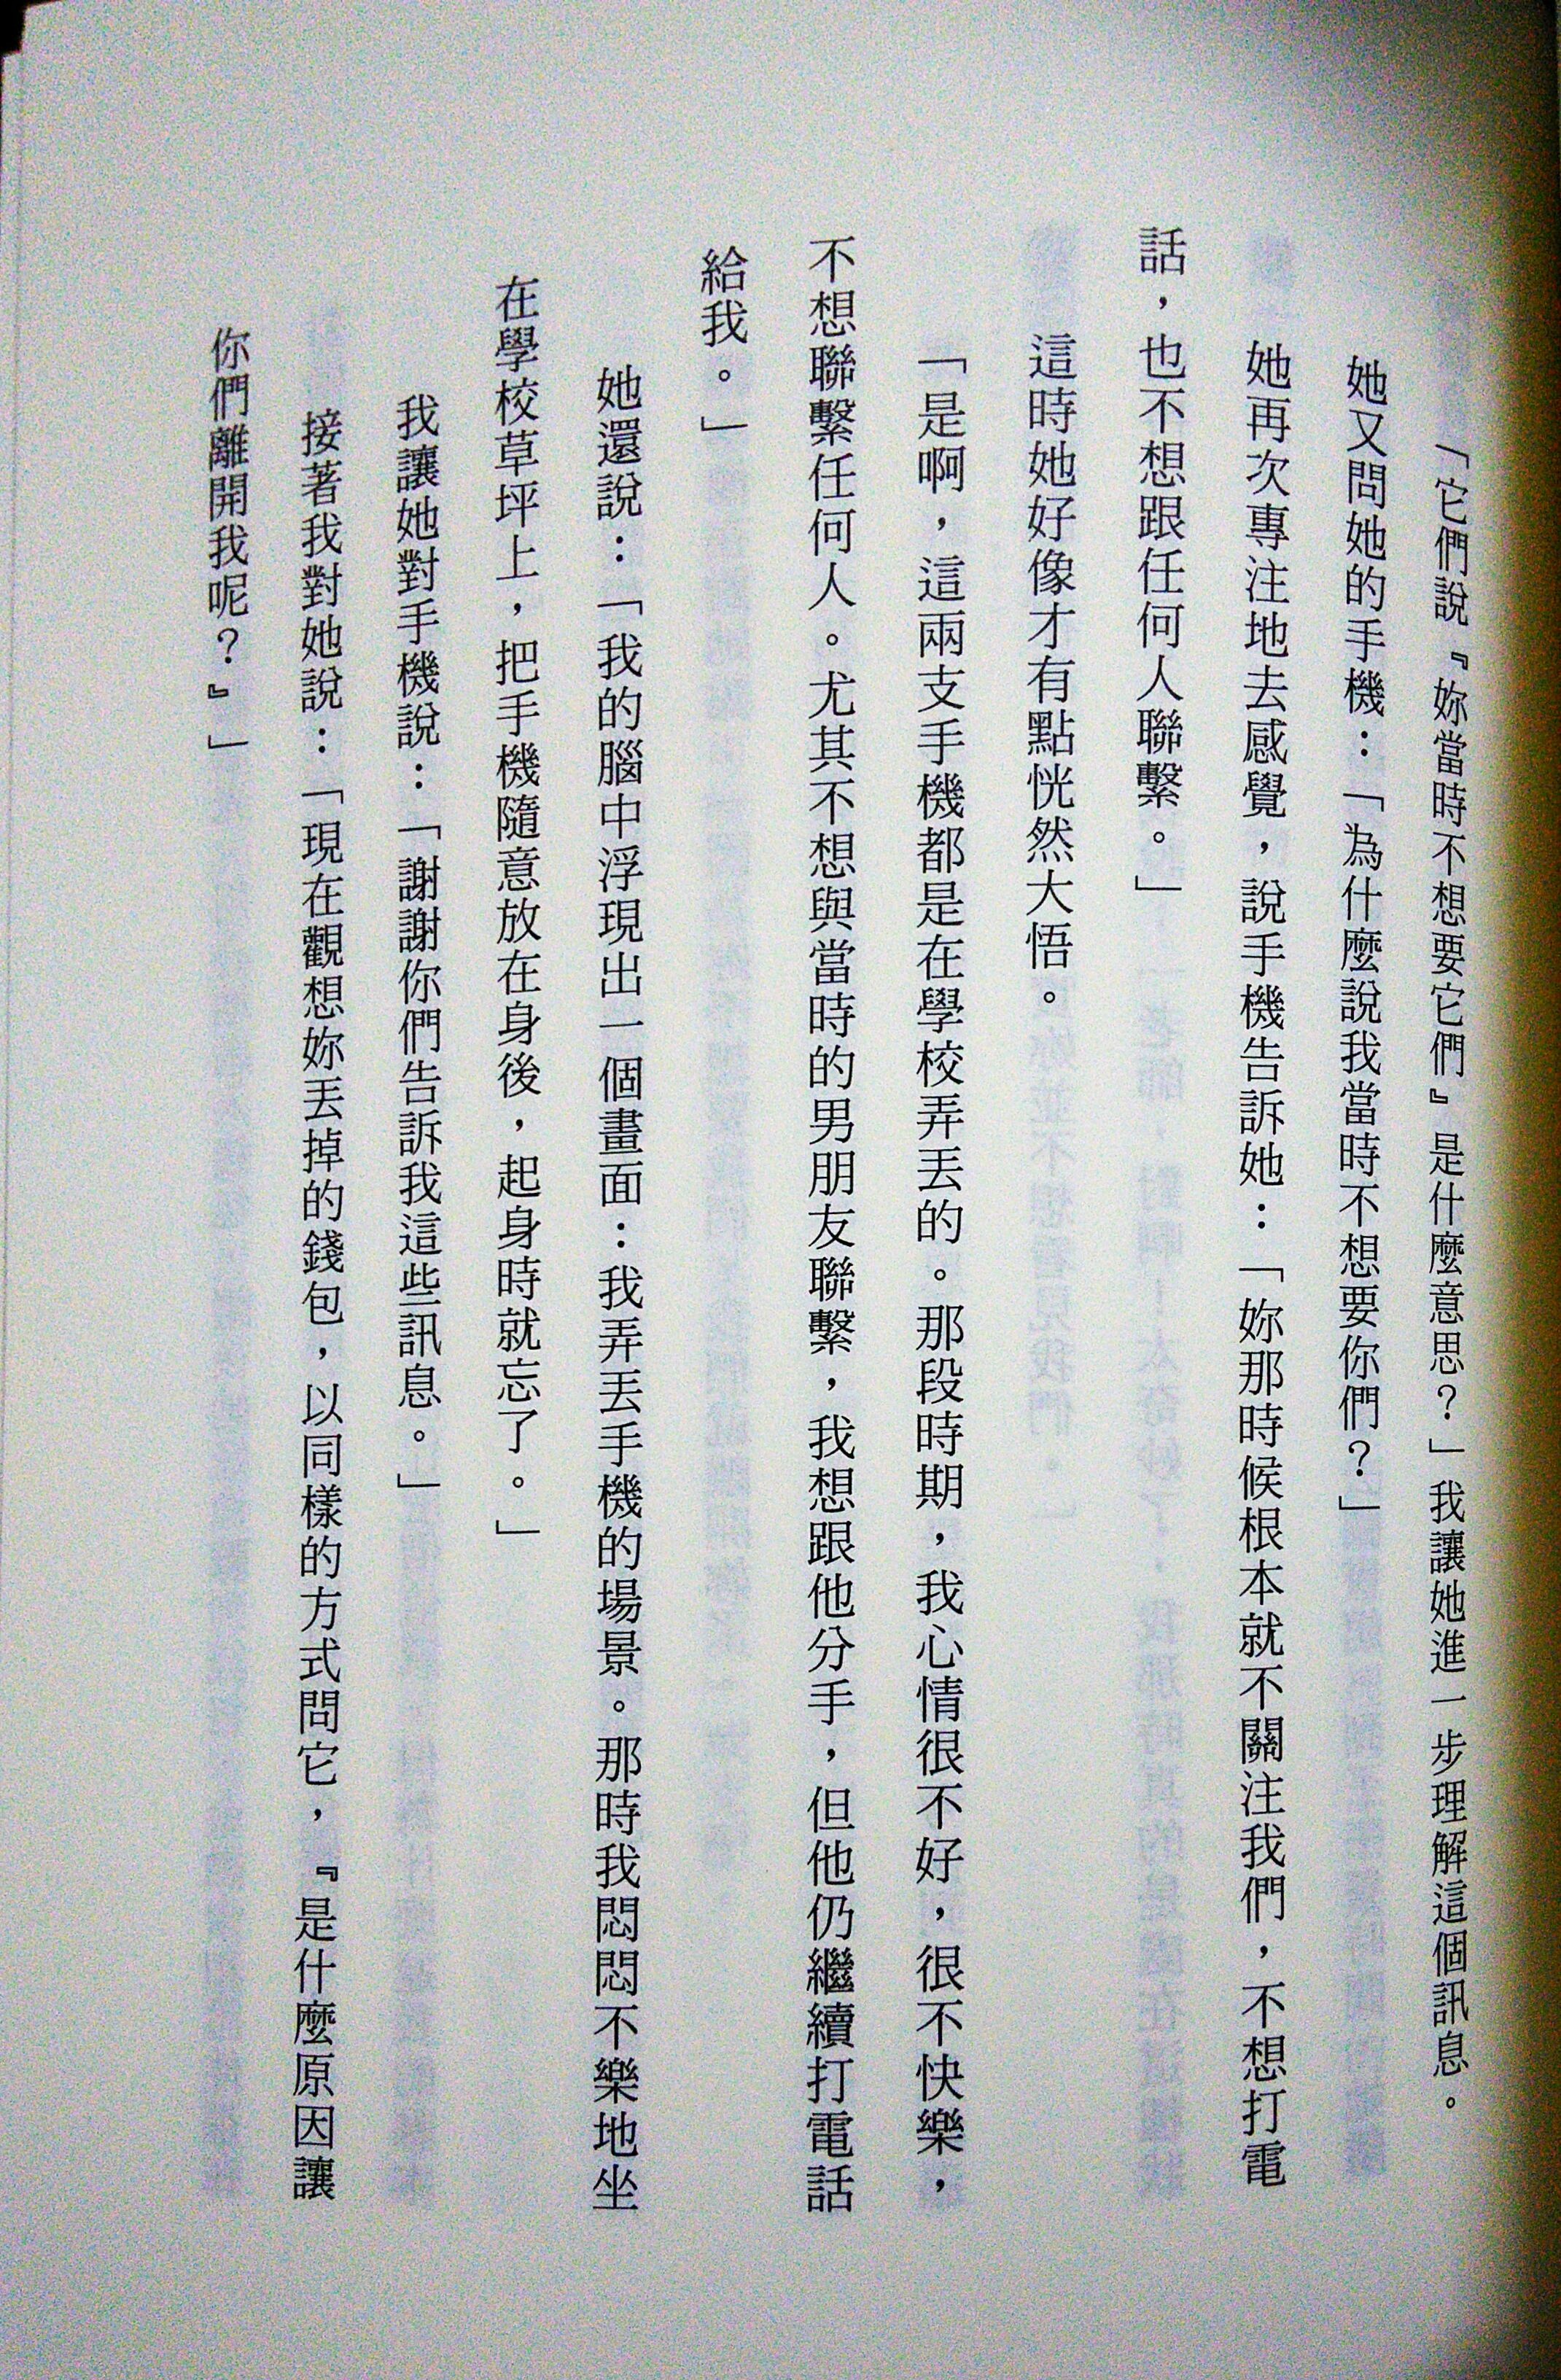 「它們說『妳當時不想要它們』是什麼意思？」我讓她進一步理解這個訊息。
她又問她的手機：「為什麼說我當時不想要你們？」
她再次專注地去感覺，說手機告訴她：「妳那時候根本就不關注我們，不想打電
話，也不想跟任何人聯繫。」
這時她好像才有點恍然大悟。
「是啊，這兩支手機都是在學校弄丟的。那段時期，我心情很不好，很不快樂，
不想聯繫任何人。尤其不想與當時的男朋友聯繫，我想跟他分手，但他仍繼續打電話
給我。」
她還說：「我的腦中浮現出一個畫面：我弄丟手機的場景。那時我悶悶不樂地坐
在學校草坪上，把手機隨意放在身後，起身時就忘了。」
我讓她對手機說：「謝謝你們告訴我這些訊息。」
接著我對她說：「現在觀想妳丟掉的錢包，以同樣的方式問它，『是什麼原因讓
你們離開我呢？』」